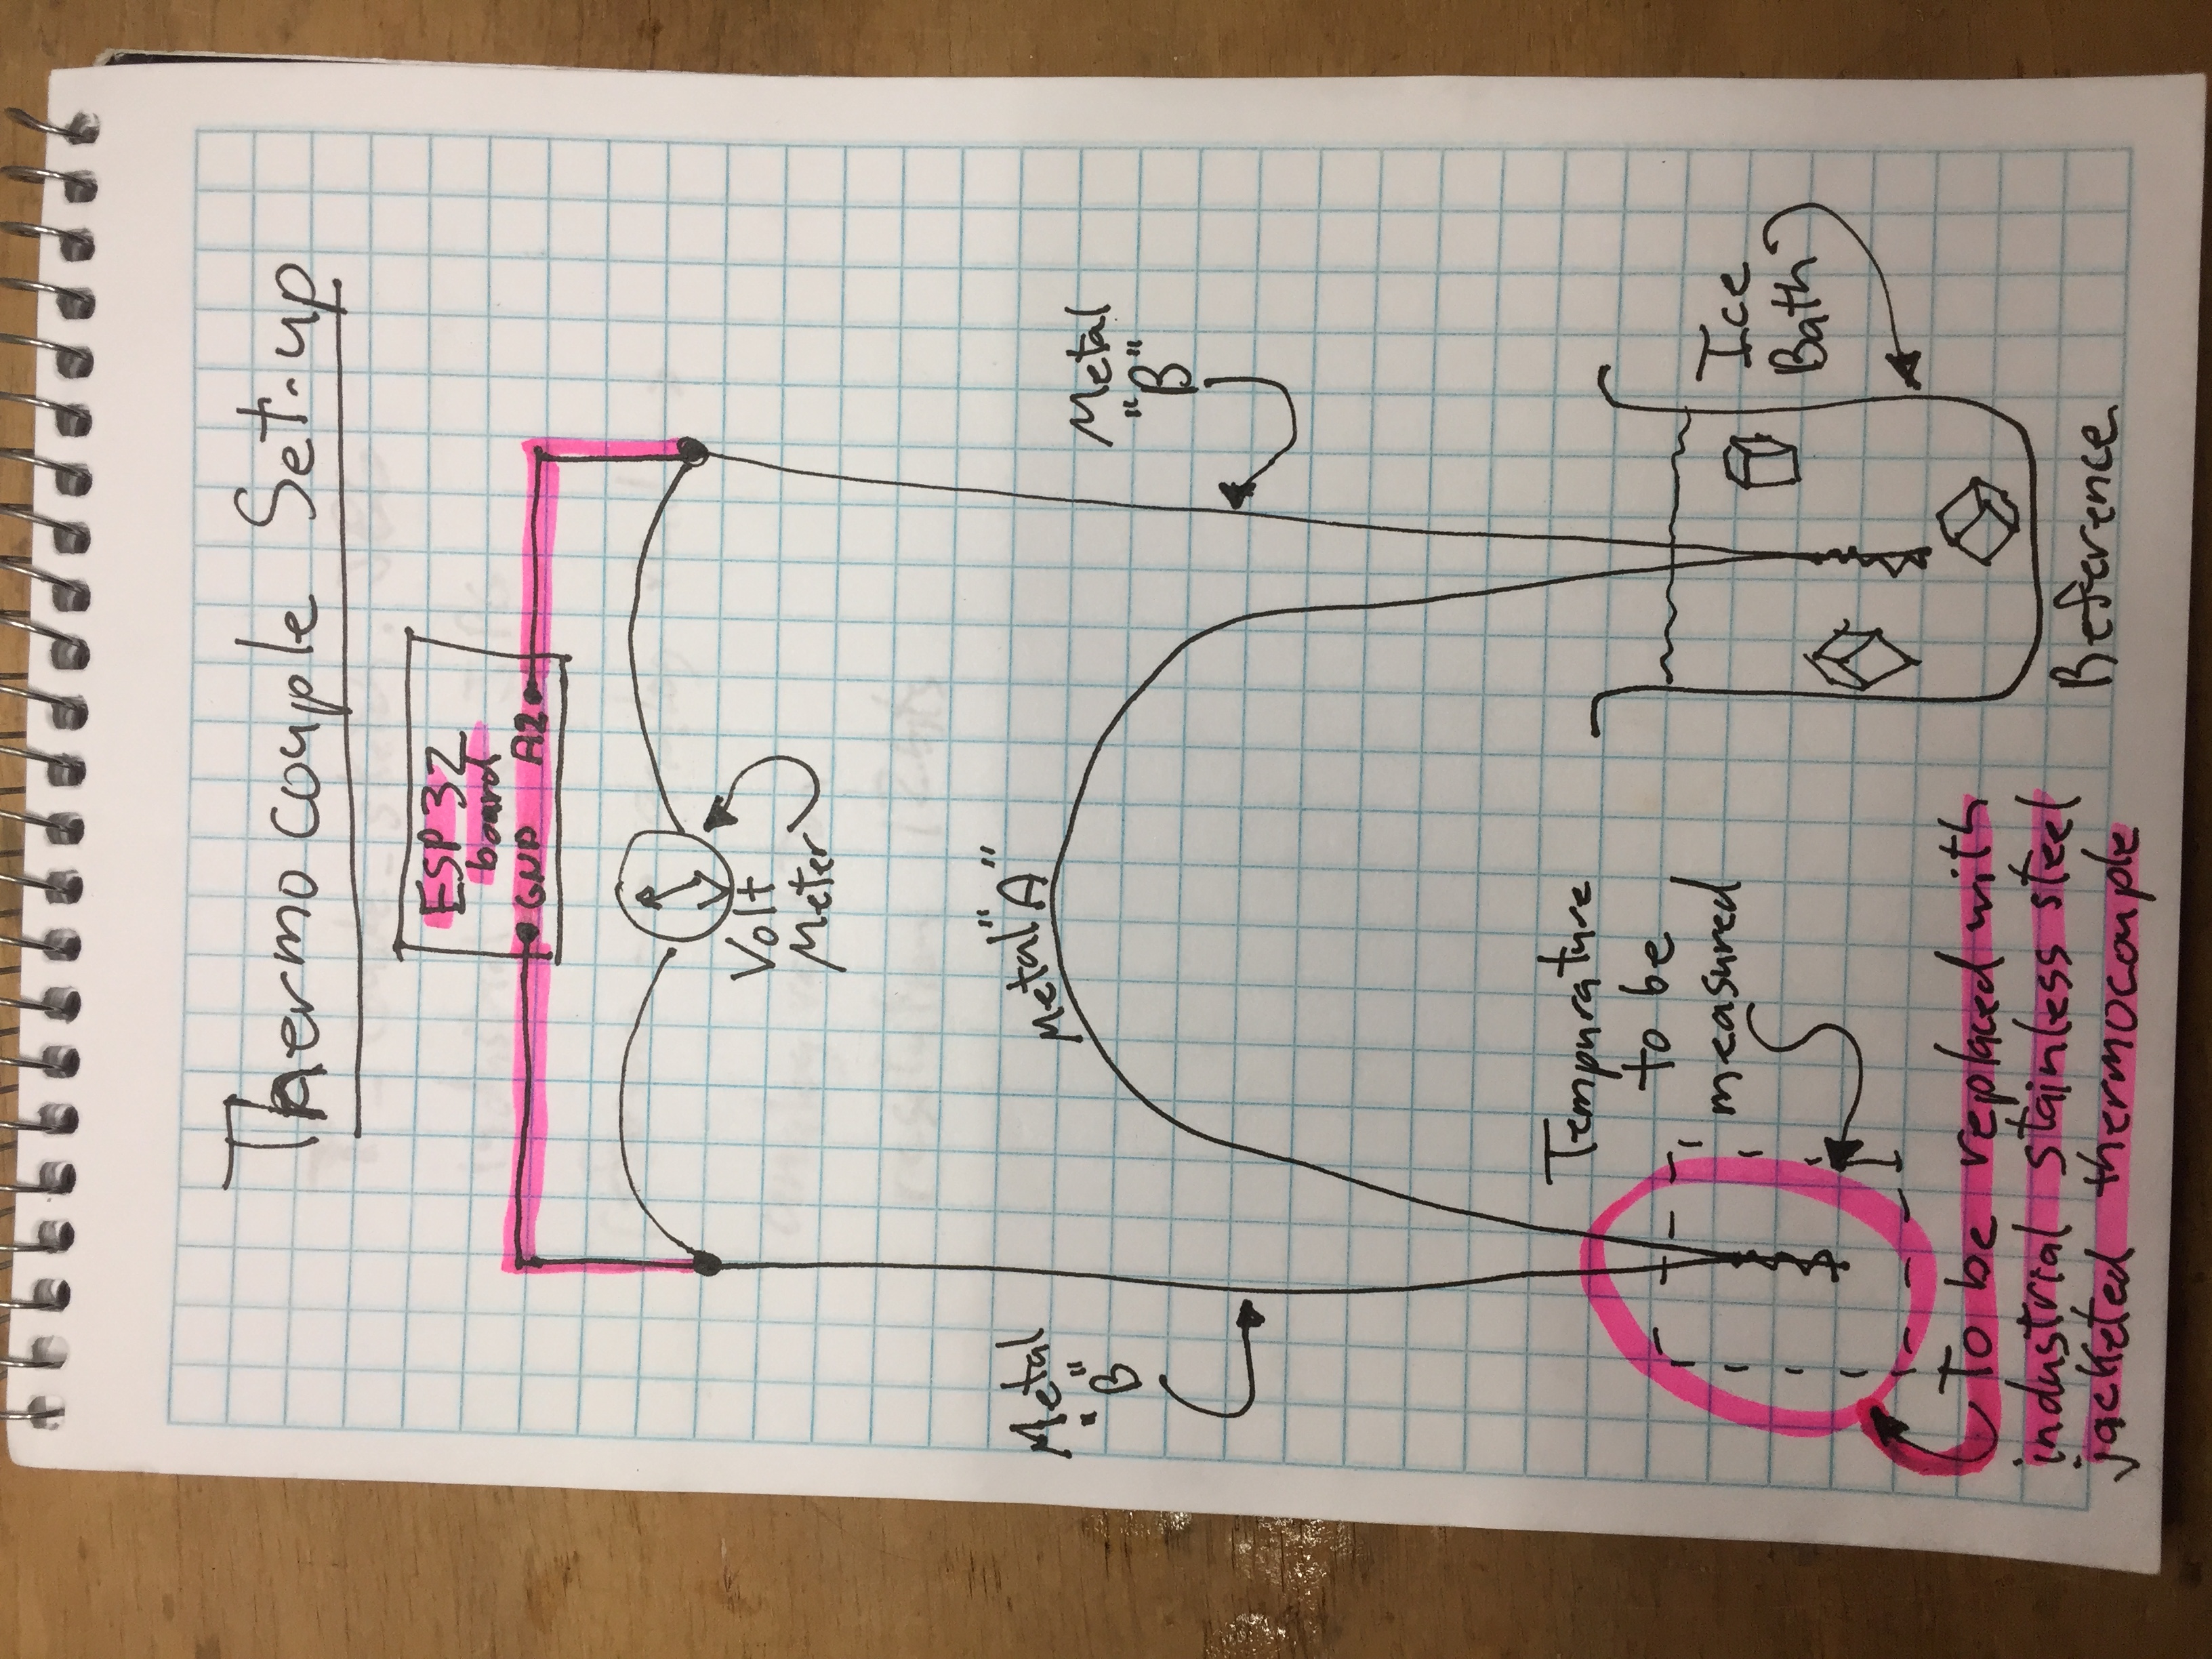 Thermocouple Set-up
ESP32
board
GND A2
Volt
Meter
Metal "A"
Metal
"B"
Metal
"B"
Tempurature
to be
measured
Ice
Bath
To be replaced with
industrial stainless steel
jacketed thermocouple
Reference